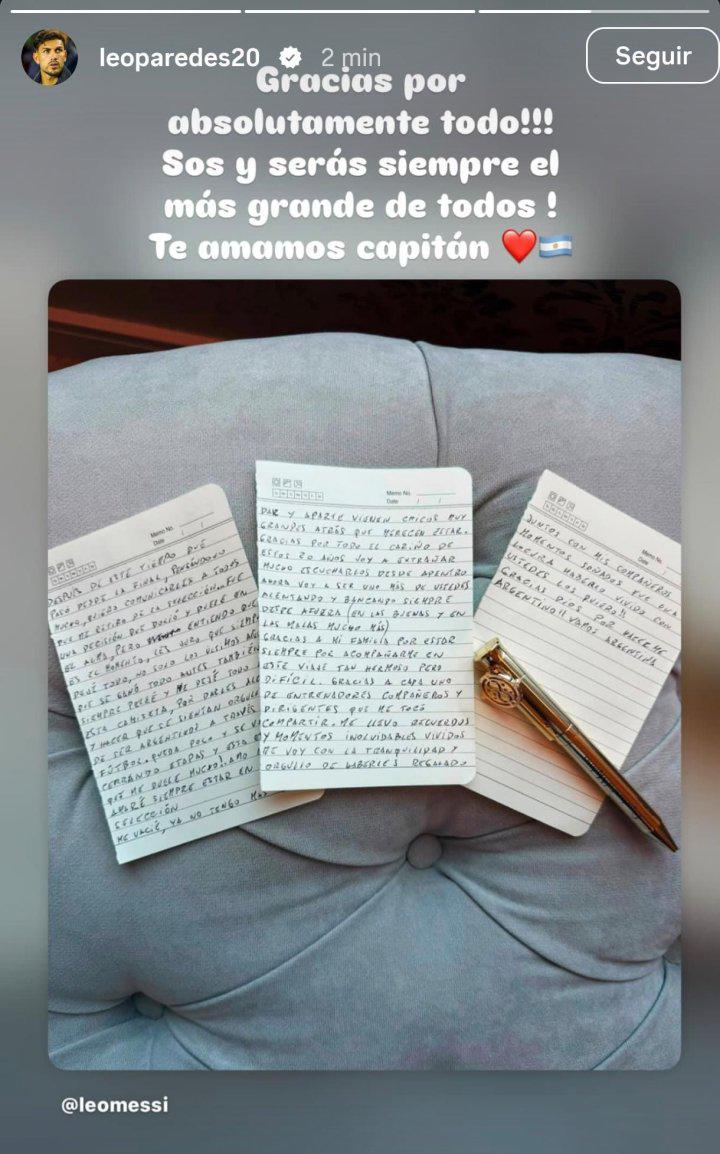 leoparedes20
2 min
Seguir
Gracias por
absolutamente todo!!!
Sos y serás siempre el
más grande de todos !
Te amamos capitán ❤️🇦🇷
Memo No.
Date / /
DESPUÉS DE ESTE TIEMPO QUE
PASÓ DESDE LA FINAL, PENSÁNDOLO
MUCHO, QUIERO COMUNICARLES A TODOS
QUE ME RETIRO DE LA SELECCIÓN. FUE
UNA DECISIÓN QUE DOLIÓ Y DUELE EN
EL ALMA, PERO ENTIENDO QUE
ES EL MOMENTO. LES JURO QUE SIEMPRE
DEJÉ TODO, NO SOLO LOS ÚLTIMOS AÑOS
QUE SE GANÓ TODO ANTES TAMBIÉN
SIEMPRE PELEÉ Y ME DEJÉ TODO
ESTA CAMISETA, POR DARLES
Y HACER QUE SE SIENTAN
DE SER ARGENTINOS A TRAVÉS
FÚTBOL. QUEDA POCO Y SE
CERRANDO ETAPAS Y ESTA
QUE ME DUELE MUCHO. AMO
AMARÉ SIEMPRE ESTAR EN
SELECCIÓN
ME VACIÉ, YA NO TENGO MÁS
Memo No.
Date / /
DAR Y APARTE VIENEN CHICOS MUY
GRANDES ATRÁS QUE MERECEN ESTAR.
GRACIAS POR TODO EL CARIÑO DE
ESTOS 20 AÑOS VOY A EXTRAÑAR
MUCHO ESCUCHARLOS DESDE ADENTRO.
AHORA VOY A SER UNO MÁS DE USTEDES
ALENTANDO Y BANCANDO SIEMPRE
DESDE AFUERA (EN LAS BUENAS Y EN
LAS MALAS MUCHO MÁS)
GRACIAS A MI FAMILIA POR ESTAR
SIEMPRE POR ACOMPAÑARME EN
ESTE VIAJE TAN HERMOSO PERO
DIFÍCIL. GRACIAS A CADA UNO
DE ENTRENADORES COMPAÑEROS Y
DIRIGENTES QUE ME TOCÓ
COMPARTIR. ME LLEVO RECUERDOS
Y MOMENTOS INOLVIDABLES VIVIDOS
ME VOY CON LA TRANQUILIDAD Y
ORGULLO DE HABERLES REGALADO
Memo No.
Date
JUNTOS CON MIS COMPAÑEROS
MOMENTOS SOÑADOS FUE UNA
LOCURA HABERLO VIVIDO CON
USTEDES LOS QUIERO!!
GRACIAS DIOS POR HACERME
ARGENTINO!! VAMOS ARGENTINA
@leomessi